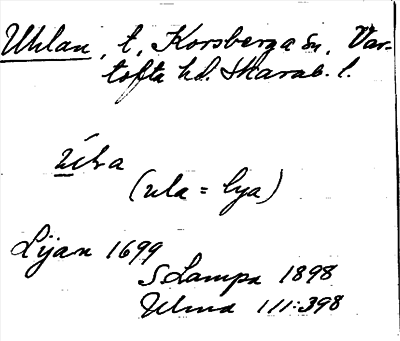 Uhlan, t, Korsberga sn, Var-
tofta hd. Skarab. l.
(ula = lya)
Lijan 1699
S Lampa 1898
Ulma III:398